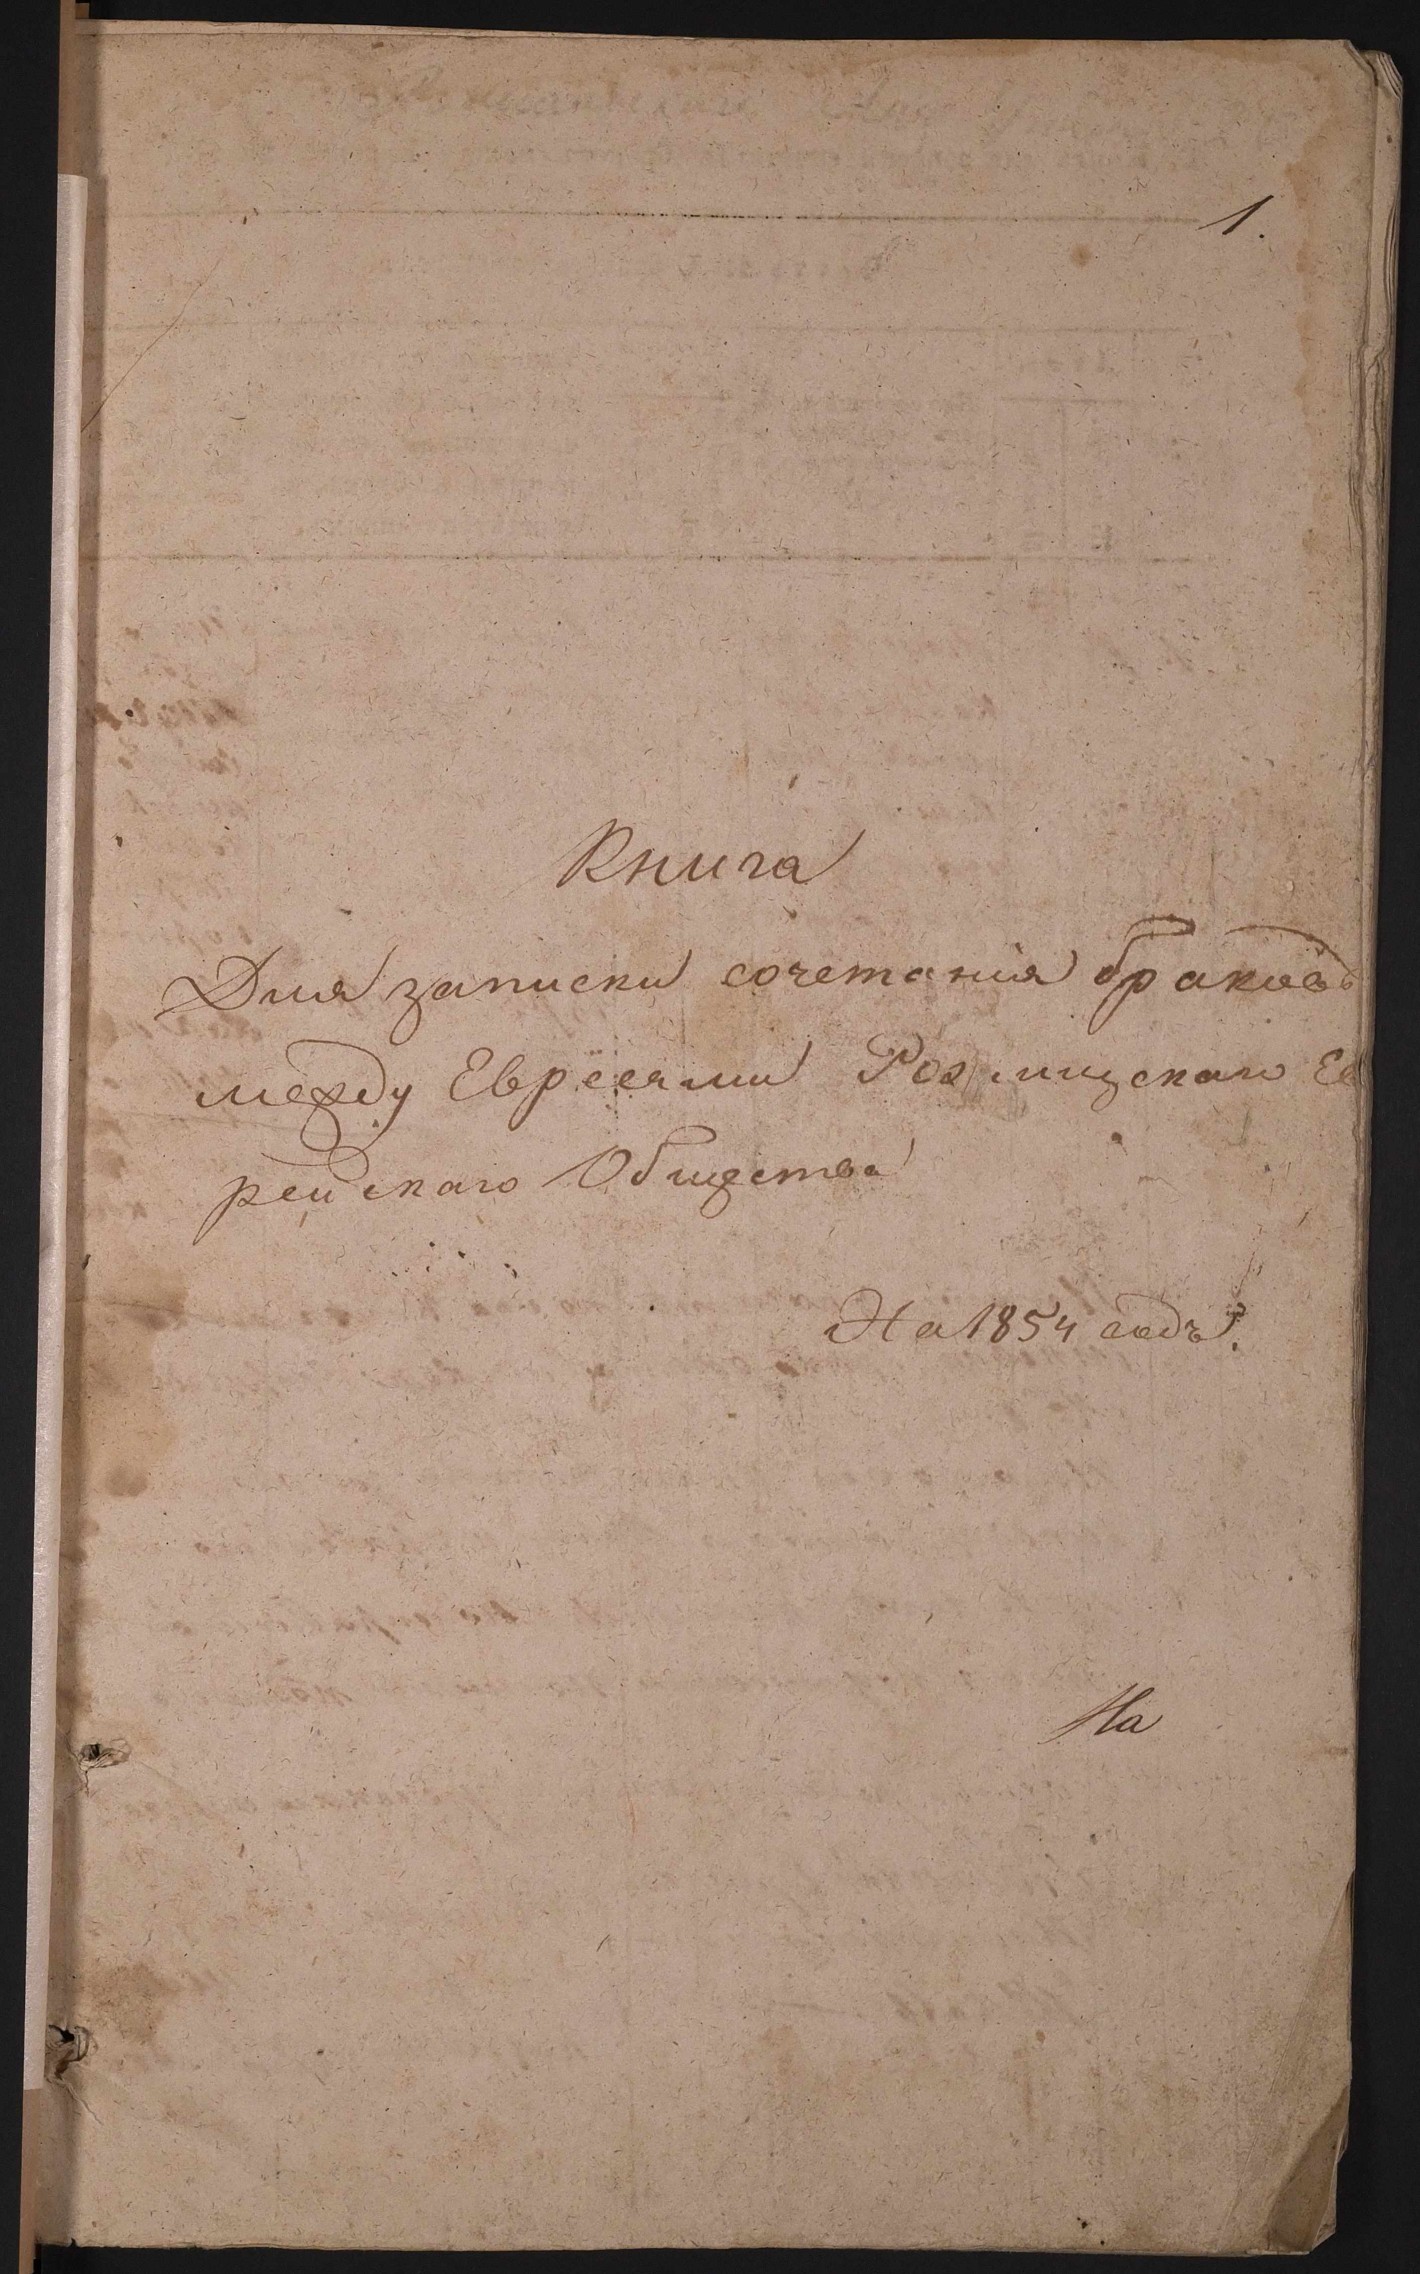 1.
Книга
Для записки сочетанія браковъ
между Евреями Рожищскаго Ев
рейскаго Общества
На 1854 годъ.
На